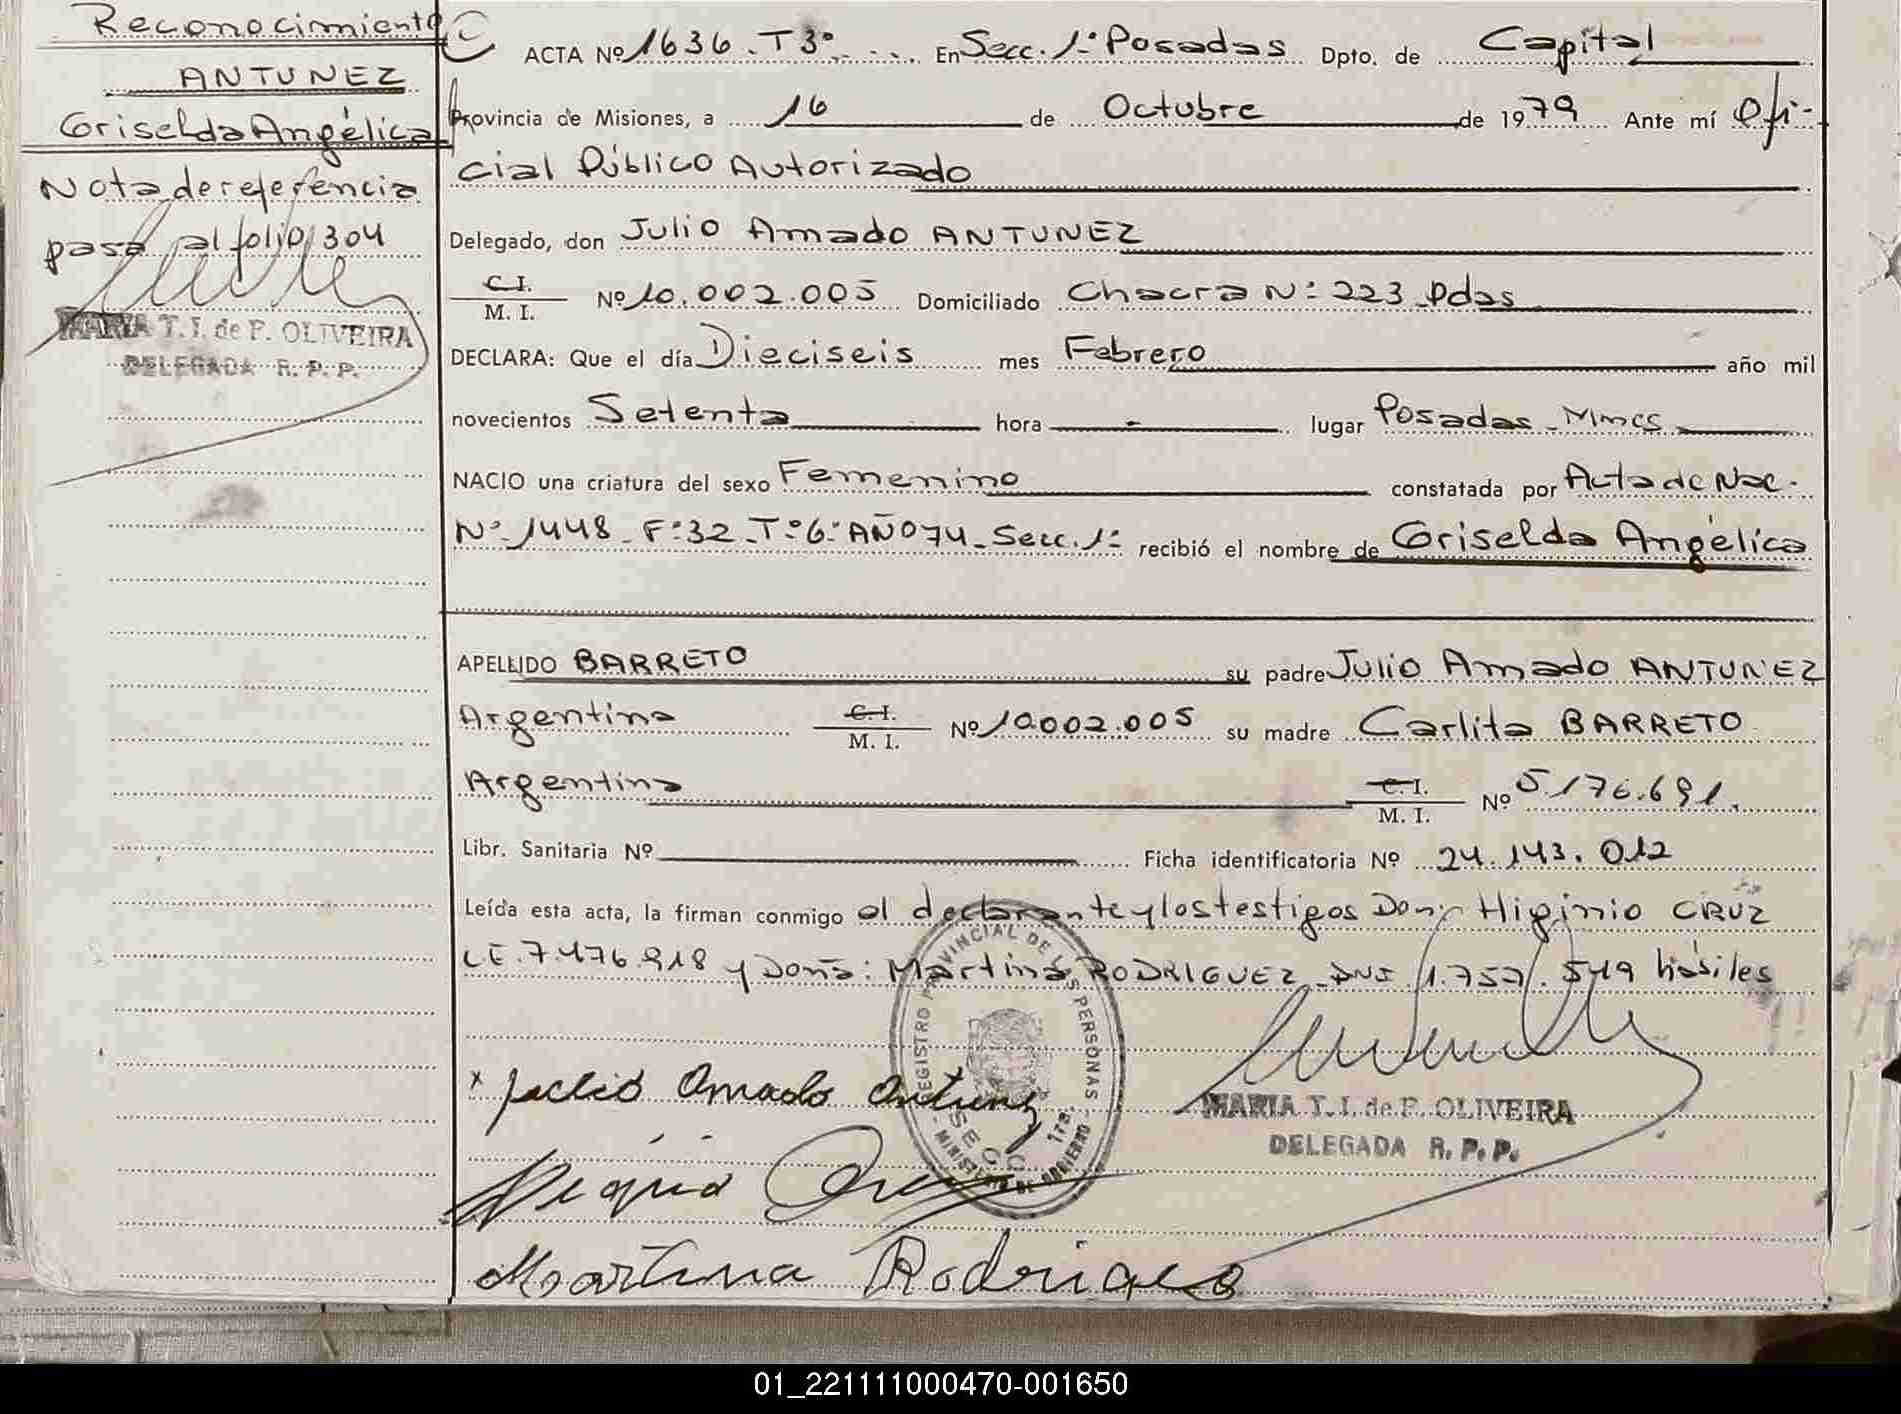 Reconocimiento
ANTUNEZ
Griselda Angélica
Nota de referencia
pasa al folio 304
MARIA T. I. de P. OLIVEIRA
DELEGADA R. P. P.
ACTA Nº 1636 . T 3º . En Secc. 1ª Posadas Dpto. de Capital
Provincia de Misiones, a 16 de Octubre de 1979 Ante mí Ofi-
cial Público Autorizado
Delegado, don Julio Amado ANTUNEZ
C. I.
M. I. Nº 10.002.005 Domiciliado Chacra Nº 223 Pdas
DECLARA: Que el día Dieciseis mes Febrero año mil
novecientos Setenta hora - lugar Posadas - Mnes
NACIO una criatura del sexo Femenino constatada por Acta de Nac.
Nº 1448 - Fº 32 - Tº 6º AÑO 74 - Secc. 1ª recibió el nombre de Griselda Angélica
APELLIDO BARRETO su padre Julio Amado ANTUNEZ
Argentino C. I.
M. I. Nº 10.002.005 su madre Carlita BARRETO
Argentina C. I.
M. I. Nº 5.176.691.
Libr. Sanitaria Nº Ficha identificatoria Nº 24.143.012
Leída esta acta, la firman conmigo el declarante y los testigos Don: Higinio CRUZ
LE. 7.476.918 y Doña: Martina RODRIGUEZ DNI 1.757.549 hábiles
REGISTRO PROVINCIAL DE LAS PERSONAS
SECC. 1ª
MINISTERIO DE GOBIERNO
x Julio Amado Antunez
MARIA T. I. de P. OLIVEIRA
DELEGADA R. P. P.
Higinio Cruz
Martina Rodrigues
01_221111000470-001650